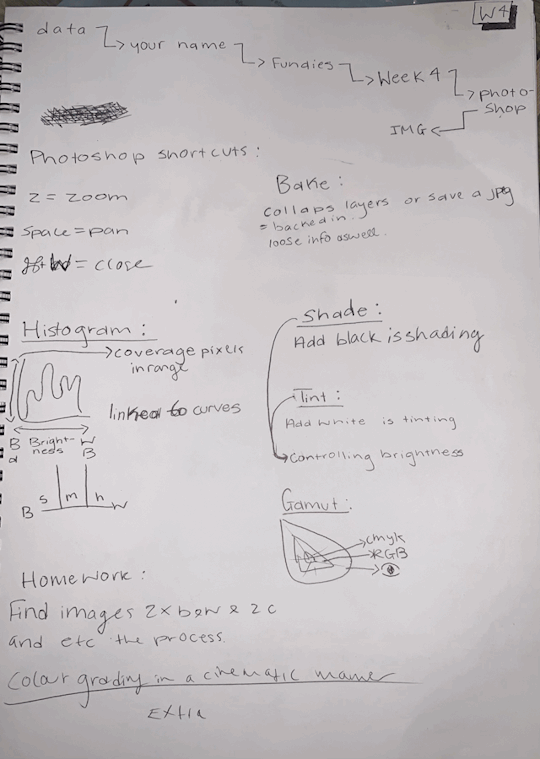 W4
data
your name
Fundies
Week 4
photo-
shop
IMG
Photoshop shortcuts :
z = zoom
space = pan
W = close
Bake :
collaps layers or save a jpg
= backed in.
loose info aswell.
Histogram :
coverage pixels
in range
linked to curves
B Bright- W
d ness B
s m h
B W
shade :
Add black is shading
Tint :
Add white is tinting
controlling brightness
Gamut :
cmyk
RGB
Homework :
Find images 2x b&w & 2 c
and etc the process.
Colour grading in a cinematic manner
Extra